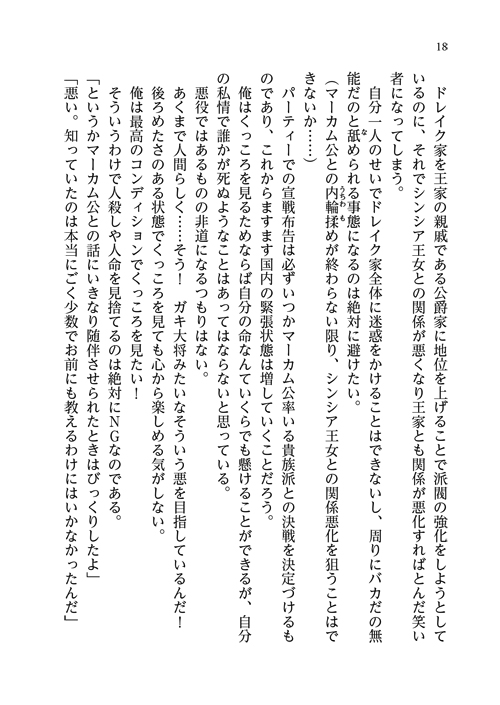 18
ドレイク家を王家の親戚である公爵家に地位を上げることで派閥の強化をしようとして
いるのに、それでシンシア王女との関係が悪くなり王家とも関係が悪化すればとんだ笑い
者になってしまう。
自分一人のせいでドレイク家全体に迷惑をかけることはできないし、周りにバカだの無
能だのと舐められる事態になるのは絶対に避けたい。
（マーカム公との内輪揉めが終わらない限り、シンシア王女との関係悪化を狙うことはで
きないか……）
パーティーでの宣戦布告は必ずいつかマーカム公率いる貴族派との決戦を決定づけるも
のであり、これからますます国内の緊張状態は増していくことだろう。
俺はくっころを見るためならば自分の命なんていくらでも懸けることができるが、自分
の私情で誰かが死ぬようなことはあってはならないと思っている。
悪役ではあるものの非道になるつもりはない。
あくまで人間らしく……そう！　ガキ大将みたいなそういう悪を目指しているんだ！
後ろめたさのある状態でくっころを見ても心から楽しめる気がしない。
俺は最高のコンディションでくっころを見たい！
そういうわけで人殺しや人命を見捨てるのは絶対にNGなのである。
「というかマーカム公との話にいきなり随伴させられたときはびっくりしたよ」
「悪い。知っていたのは本当にごく少数でお前にも教えるわけにはいかなかったんだ」